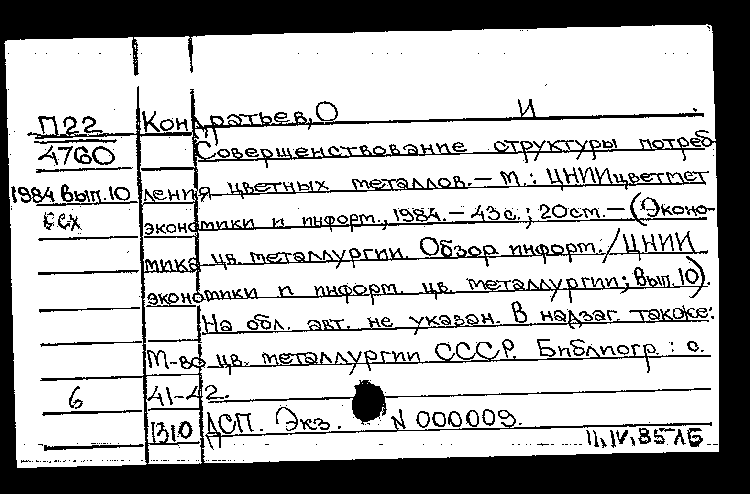 П22 Кондратьев, О И .
4760 Совершенствование структуры потреб-
1984 вып. 10 ления цветных металлов. – М.: ЦНИИцветмет
ссх экономики и информ., 1984. – 43 с.; 20 см. – (Эконо-
мика цв. металлургии. Обзор информ. / ЦНИИ
экономики и информ. цв. металлургии; Вып. 10).
На обл. авт. не указан. В надзаг. также:
М-во цв. металлургии СССР. Библиогр.: с.
6 41-42.
1310 ДСП. Экз. N 000009.
11.IV.85